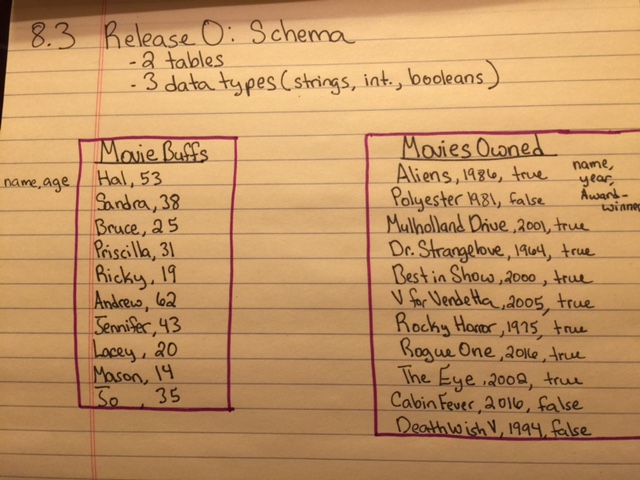 8.3 Release 0: Schema
- 2 tables
- 3 data types (strings, int., booleans)
Movie Buffs
name, age
Hal, 53
Sandra, 38
Bruce, 25
Priscilla, 31
Ricky, 19
Andrew, 62
Jennifer, 43
Lacey, 20
Mason, 14
Jo , 35
Movies Owned
name,
year,
Award-
winner
Aliens, 1986, true
Polyester 1981, false
Mulholland Drive, 2001, true
Dr. Strangelove, 1964, true
Best in Show, 2000, true
V for Vendetta, 2005, true
Rocky Horror, 1975, true
Rogue One, 2016, true
The Eye, 2002, true
Cabin Fever, 2016, false
Death Wish V, 1994, false